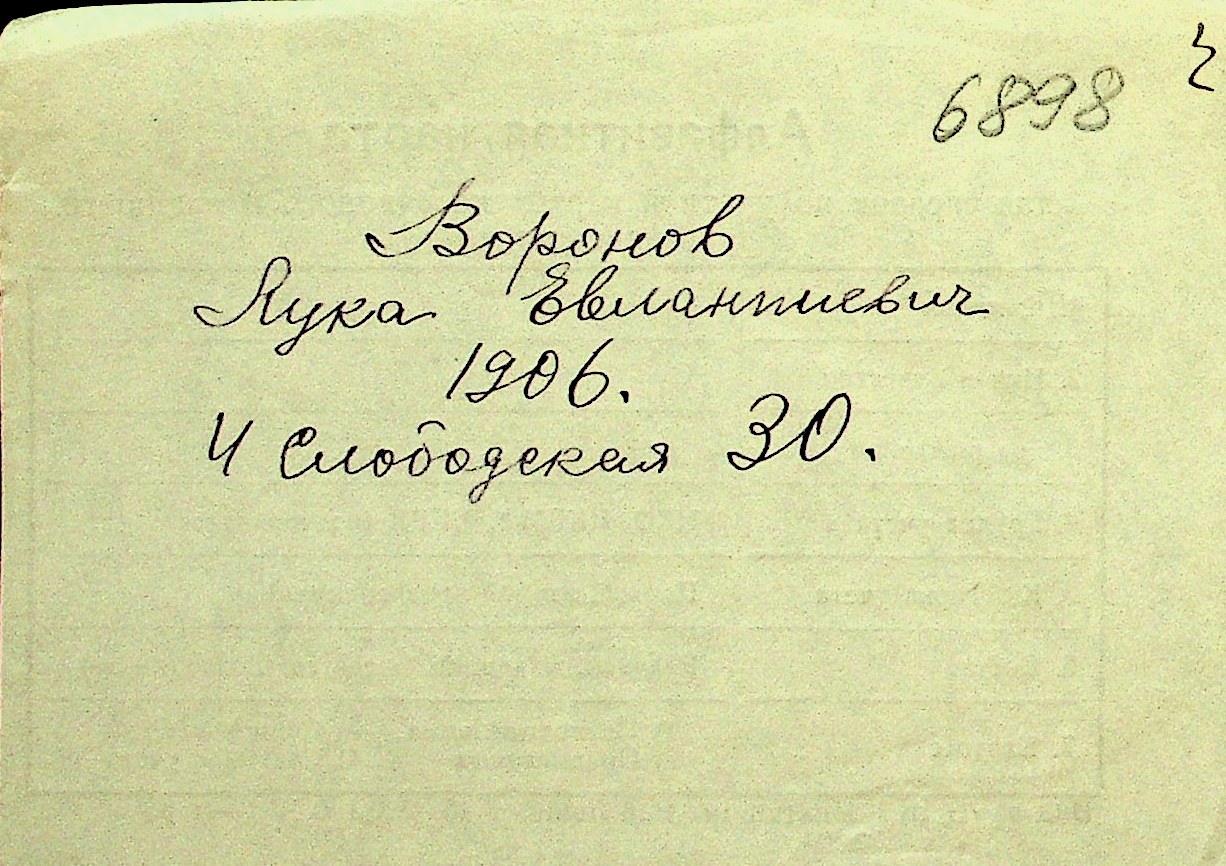 6898
Воронов
Лука Евлампиевич
1906.
4 Слободская 30.